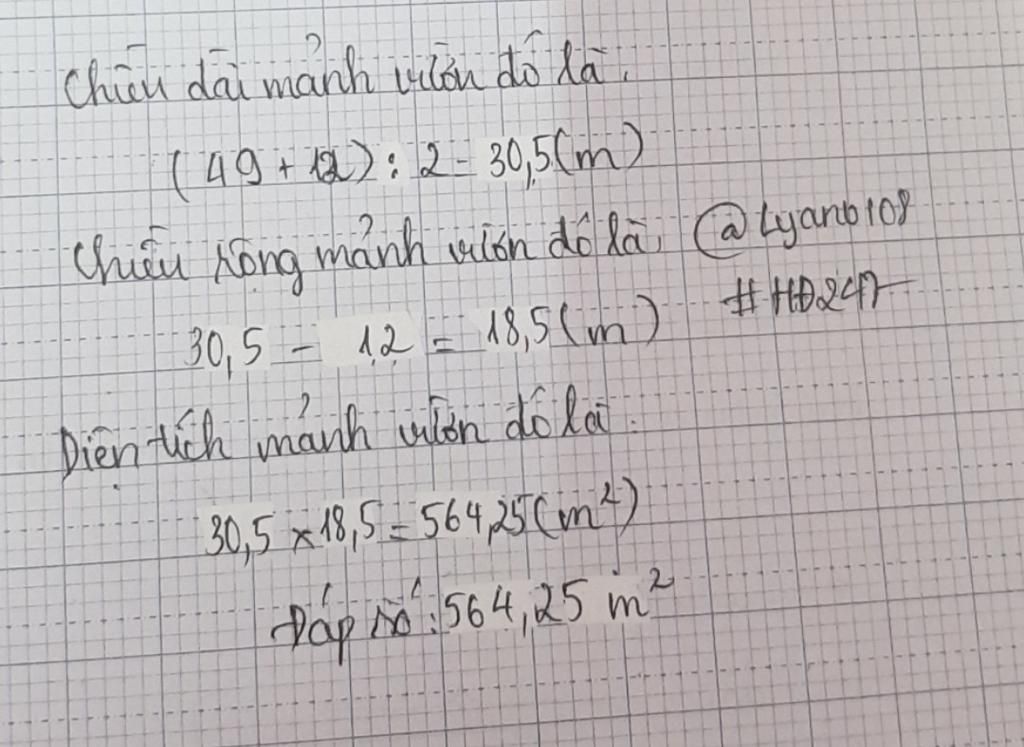 Chiều dài mảnh vườn đó là:
(49 + 12) : 2 = 30,5 (m)
Chiều rộng mảnh vườn đó là: @Lyanb108
30,5 - 12 = 18,5 (m) #HD247
Diện tích mảnh vườn đó là:
30,5 × 18,5 = 564,25 (m²)
Đáp số: 564,25 m²